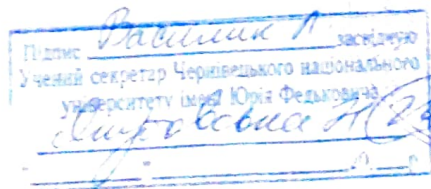 Підпис Василик Л засвідчую
Учений секретар Чернівецького національного
університету імені Юрія Федьковича